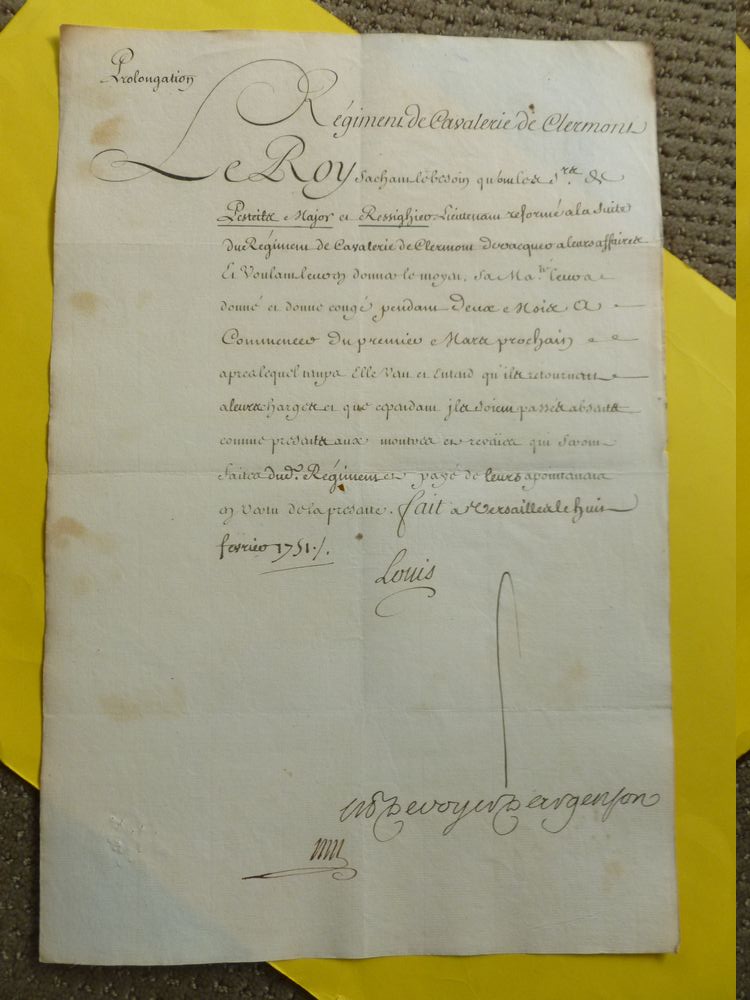 Prolongation
Régiment de Cavalerie de Clermont
Le Roy sachant le besoin qu'ont les Srs. de
Major et Ressighier Lieutenant reformé a la Suite
du Régiment de Cavalerie de Clermont de vacquer a leurs affaires
Et Voulant leur en donner le moyen, Sa Maté. leur a
donné et donne congé pendant Deux Mois A
Commencer du premier Mars prochain
apres lequel temps Elle Veut et Entend qu'ils retournent
a leurs charges et que cependant ils soient passés absents
comme presents aux montres et reveües qui seront
faites dud. Régiment et payé de leurs apointemens
en vertu de la presente. fait a Versailles le huit
fevrier 1751./.
Louis
De voyer D'argenson